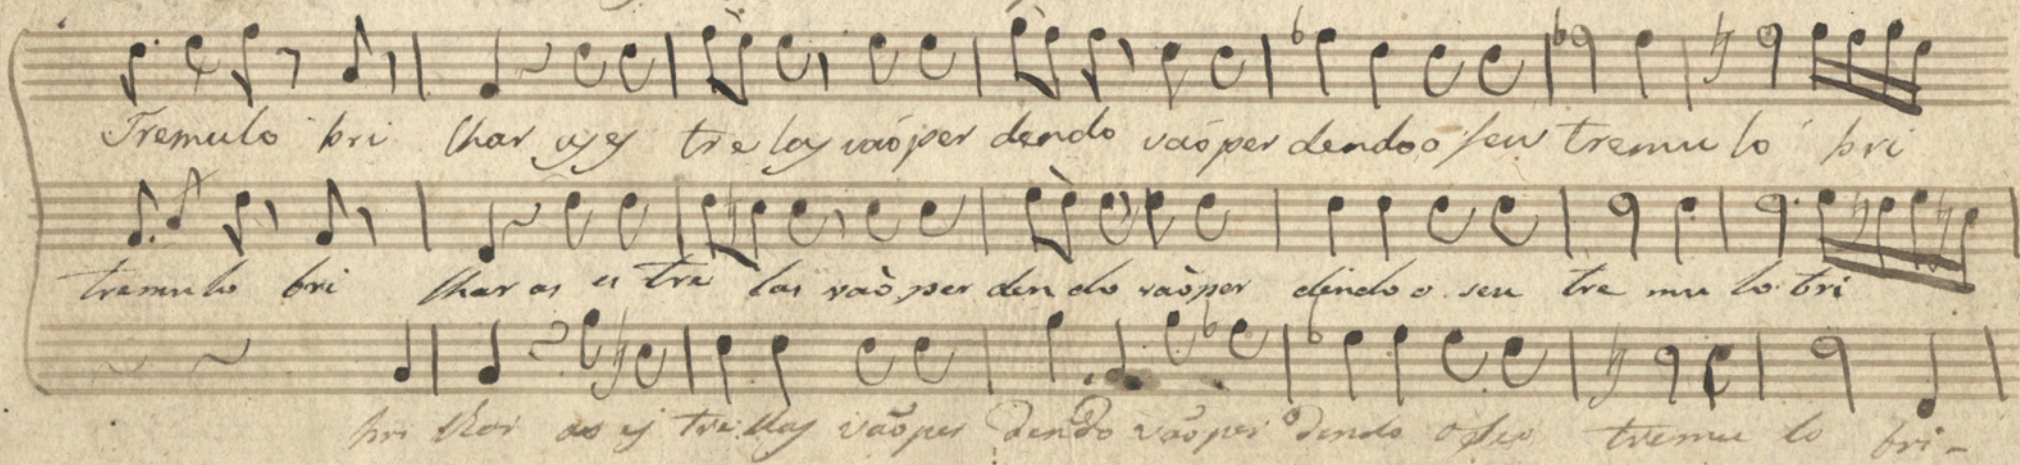 Tremulo bri lhar as es tre las vaõ per dendo vaõ per dendo o seu tremu lo bri
tremulo bri lhar as es tre las vaõ per den do vaõ per dendo o seu tre mu lo bri
bri lhar as es tre llas vaõ per dendo vaõ per dendo o seo tremu lo bri-